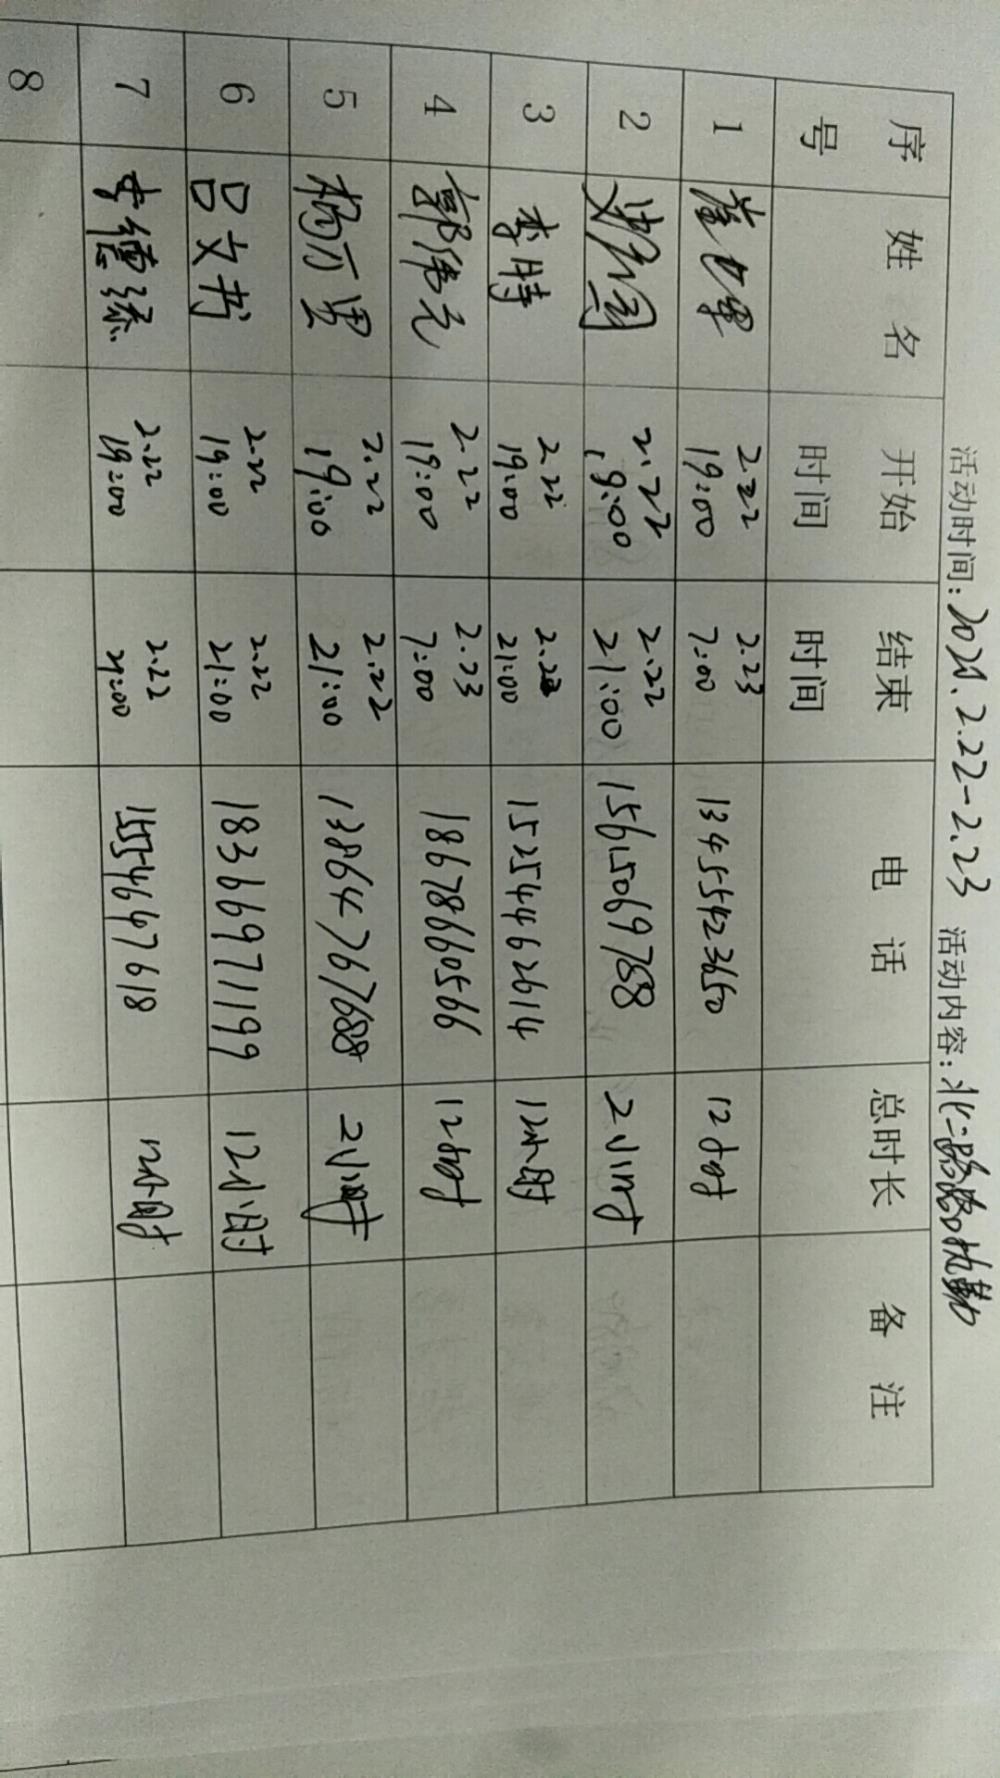 活动时间：2021.2.22-2.23 活动内容：北二路路口执勤
序号 姓名 开始时间 结束时间 电话 总时长 备注
1 2.22 19:00 2.23 7:00 13455423650 12小时
2 2.22 19:00 2.22 21:00 15615069788 2小时
3 李特 2.22 19:00 2.22 21:00 15254462614 12小时
4 郭伟元 2.22 19:00 2.23 7:00 18678660566 12小时
5 2.22 19:00 2.22 21:00 13864767688 2小时
6 吕文书 2.22 19:00 2.22 21:00 18366971199 12小时
7 李德添 2.22 19:00 2.22 21:00 15546697618 12小时
8